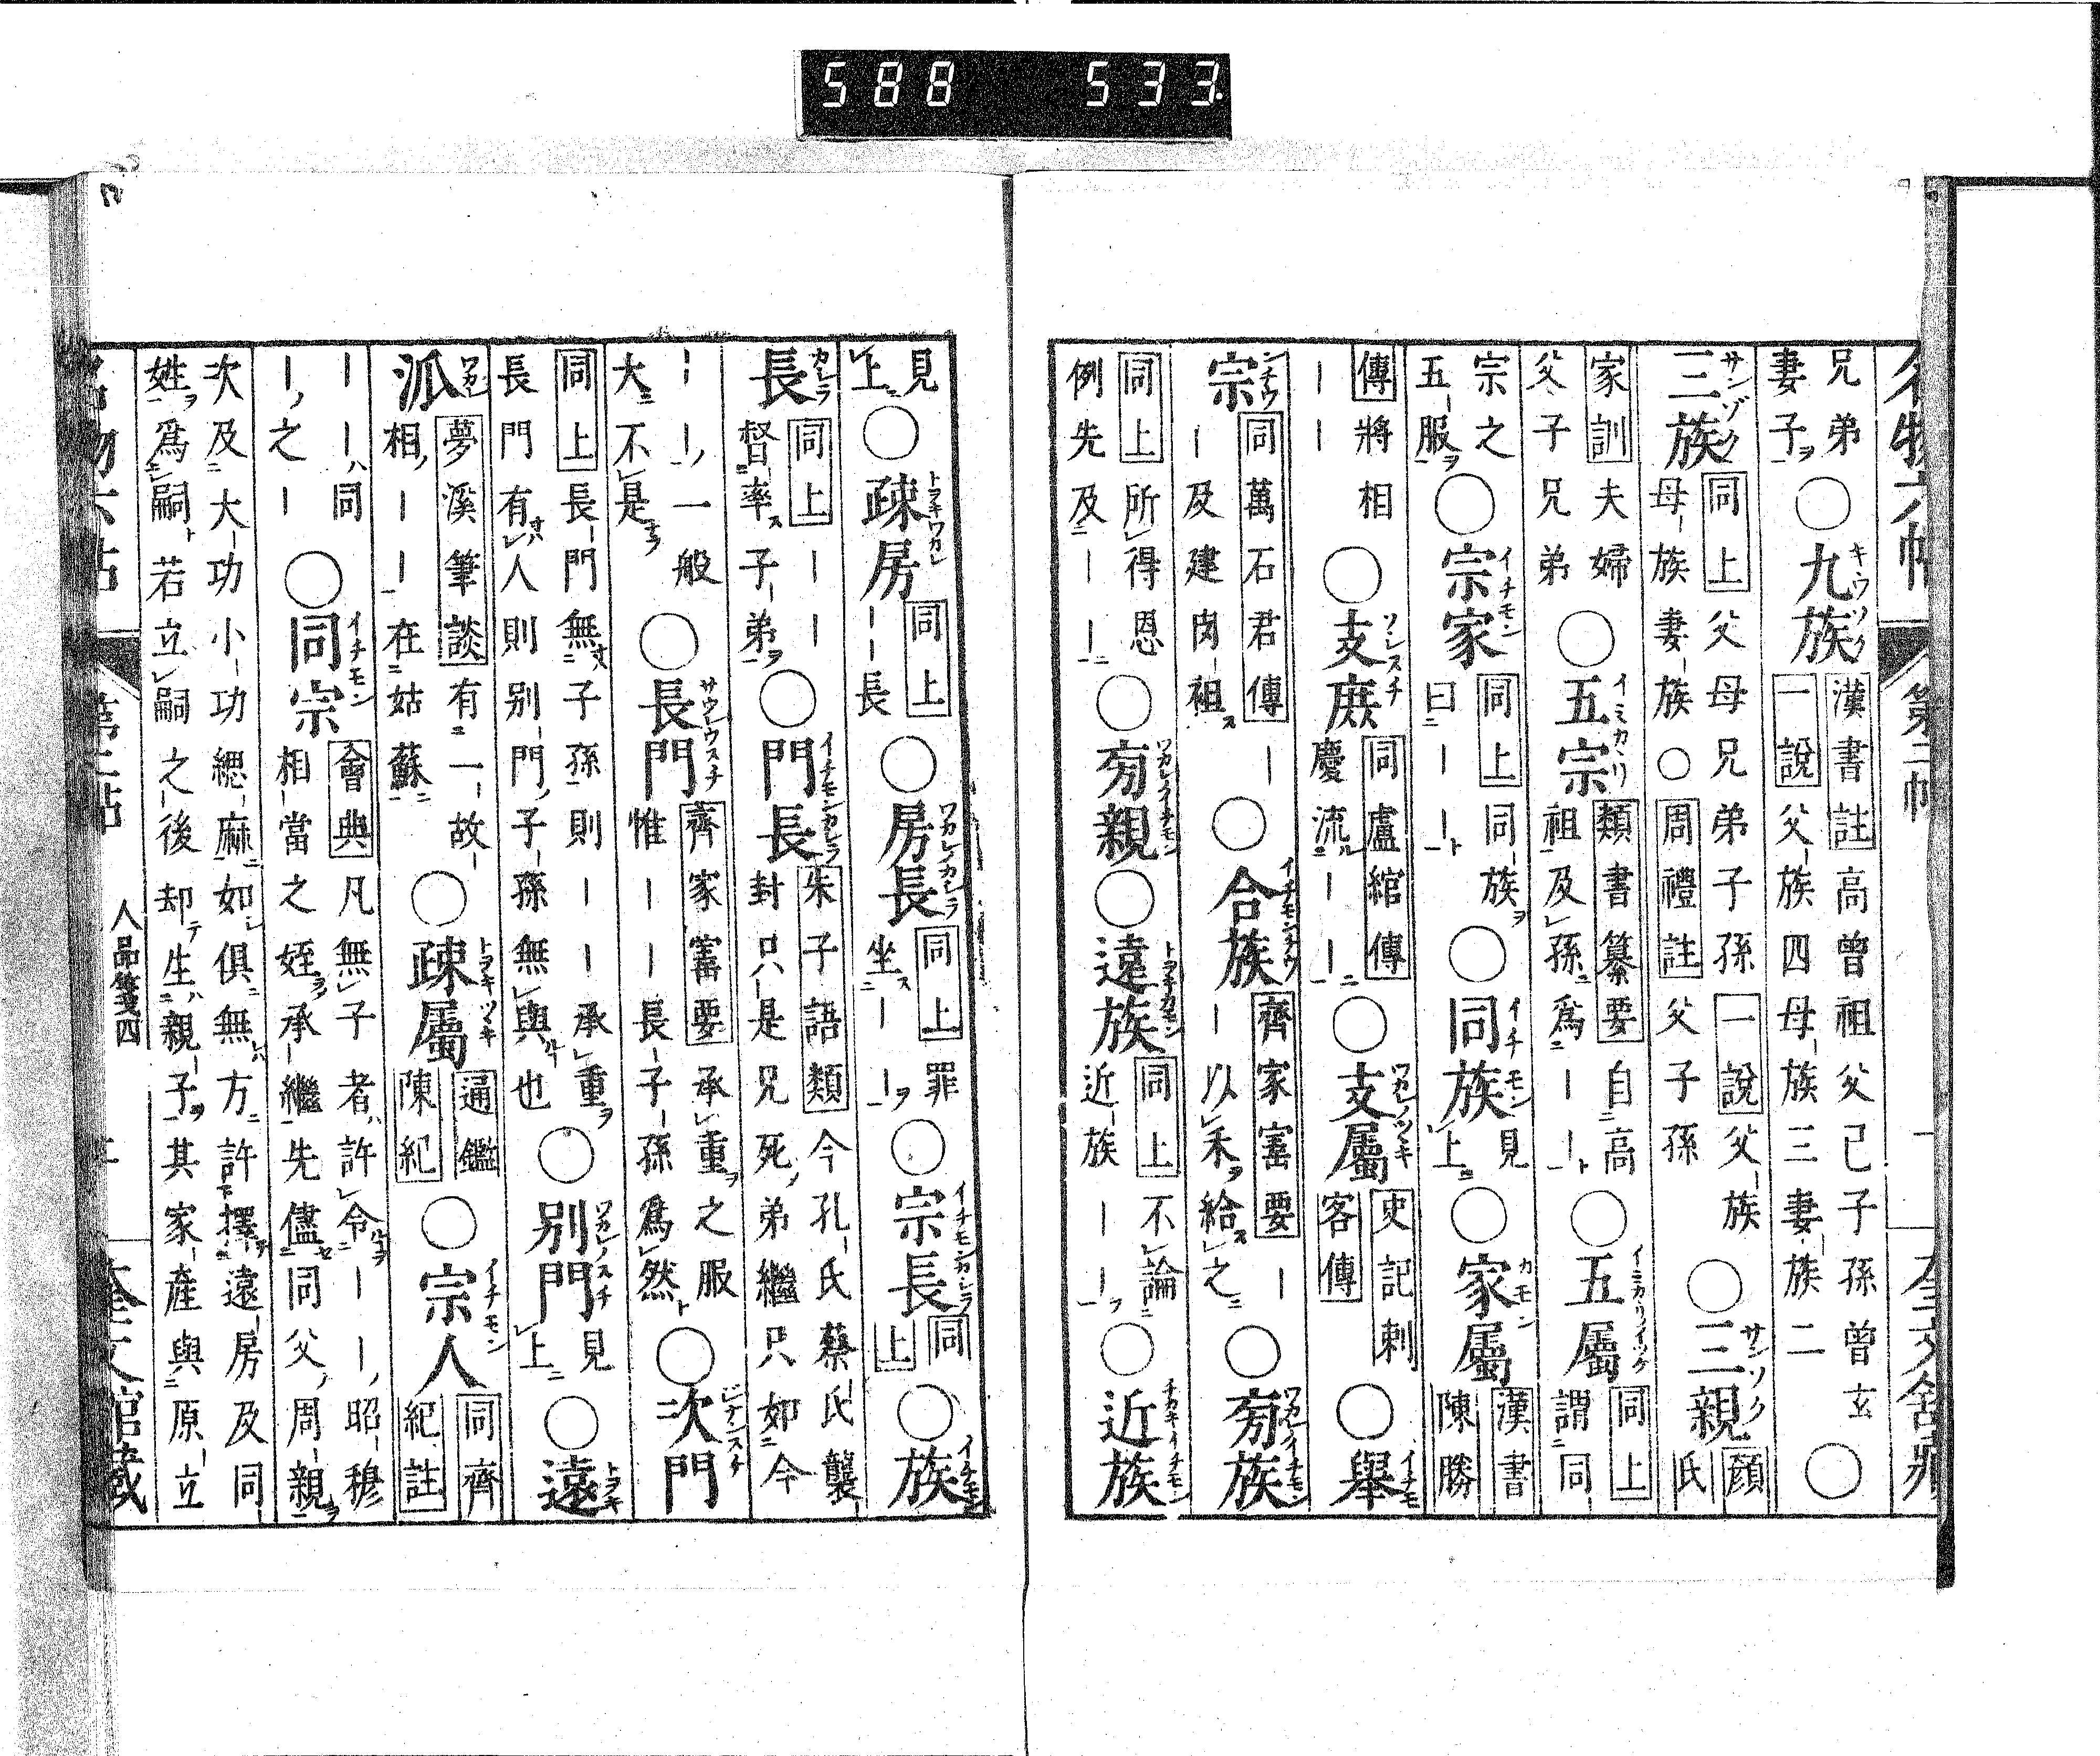 588 533
兄弟
妻子ヲ
○九族 キウゾク
漢書註 高曾祖父已子孫曾玄
一說 父族四母族三妻族二
○
三族 サンゾク
同上 父母兄弟子孫 一說 父族
母族妻族○周禮註 父子孫
○三親 サンゾク
顏氏
家訓 夫婦
父子兄弟
○五宗
類書纂要 自高
祖及孫爲――
○五屬
同上
謂同
宗之
五服ヲ
○宗家 イチモン
同上 同族ヲ
曰――
○同族 イチモン
見上
○家屬 カモン
漢書
陳勝
傳 將相
――
○支庶
同盧綰傳
慶流――
○支屬
史記刺
客傳
○舉
宗
同萬石君傳 ―
―及建肉祖
○合族
齊家寶要 ―
―以禾給之
○旁族
同上 所得恩
例先及――
○旁親
○遠族
同上 不論
近族――
○近族
見上
○疎房
同上
――長
○房長
同上 罪
坐――
○宗長
同上
○族
長
同上 ――
督率子弟ヲ
○門長
朱子語類 今孔氏蔡氏襲
封只是兄死弟繼只如今
――一般
大不是
○長門
齊家寶要 承重之服
惟――長子孫爲然
○次門
同上 長門無子孫則――承重
長門有人則別門子孫無與也
○別門
見上
○遠
派
夢溪筆談 有一故
相――在姑蘇
○疎屬
通鑑
陳紀
○宗人 イチモン
同齊
紀註
――同
―之―
○同宗 イチモン
會典 凡無子者許令――昭穆
相當之姪承繼先儘同父周親
次及大功小功緦麻如俱無方許擇遠房及同
姓爲嗣若立嗣之後却生親子其家產與原立
第二帖
人品箋四